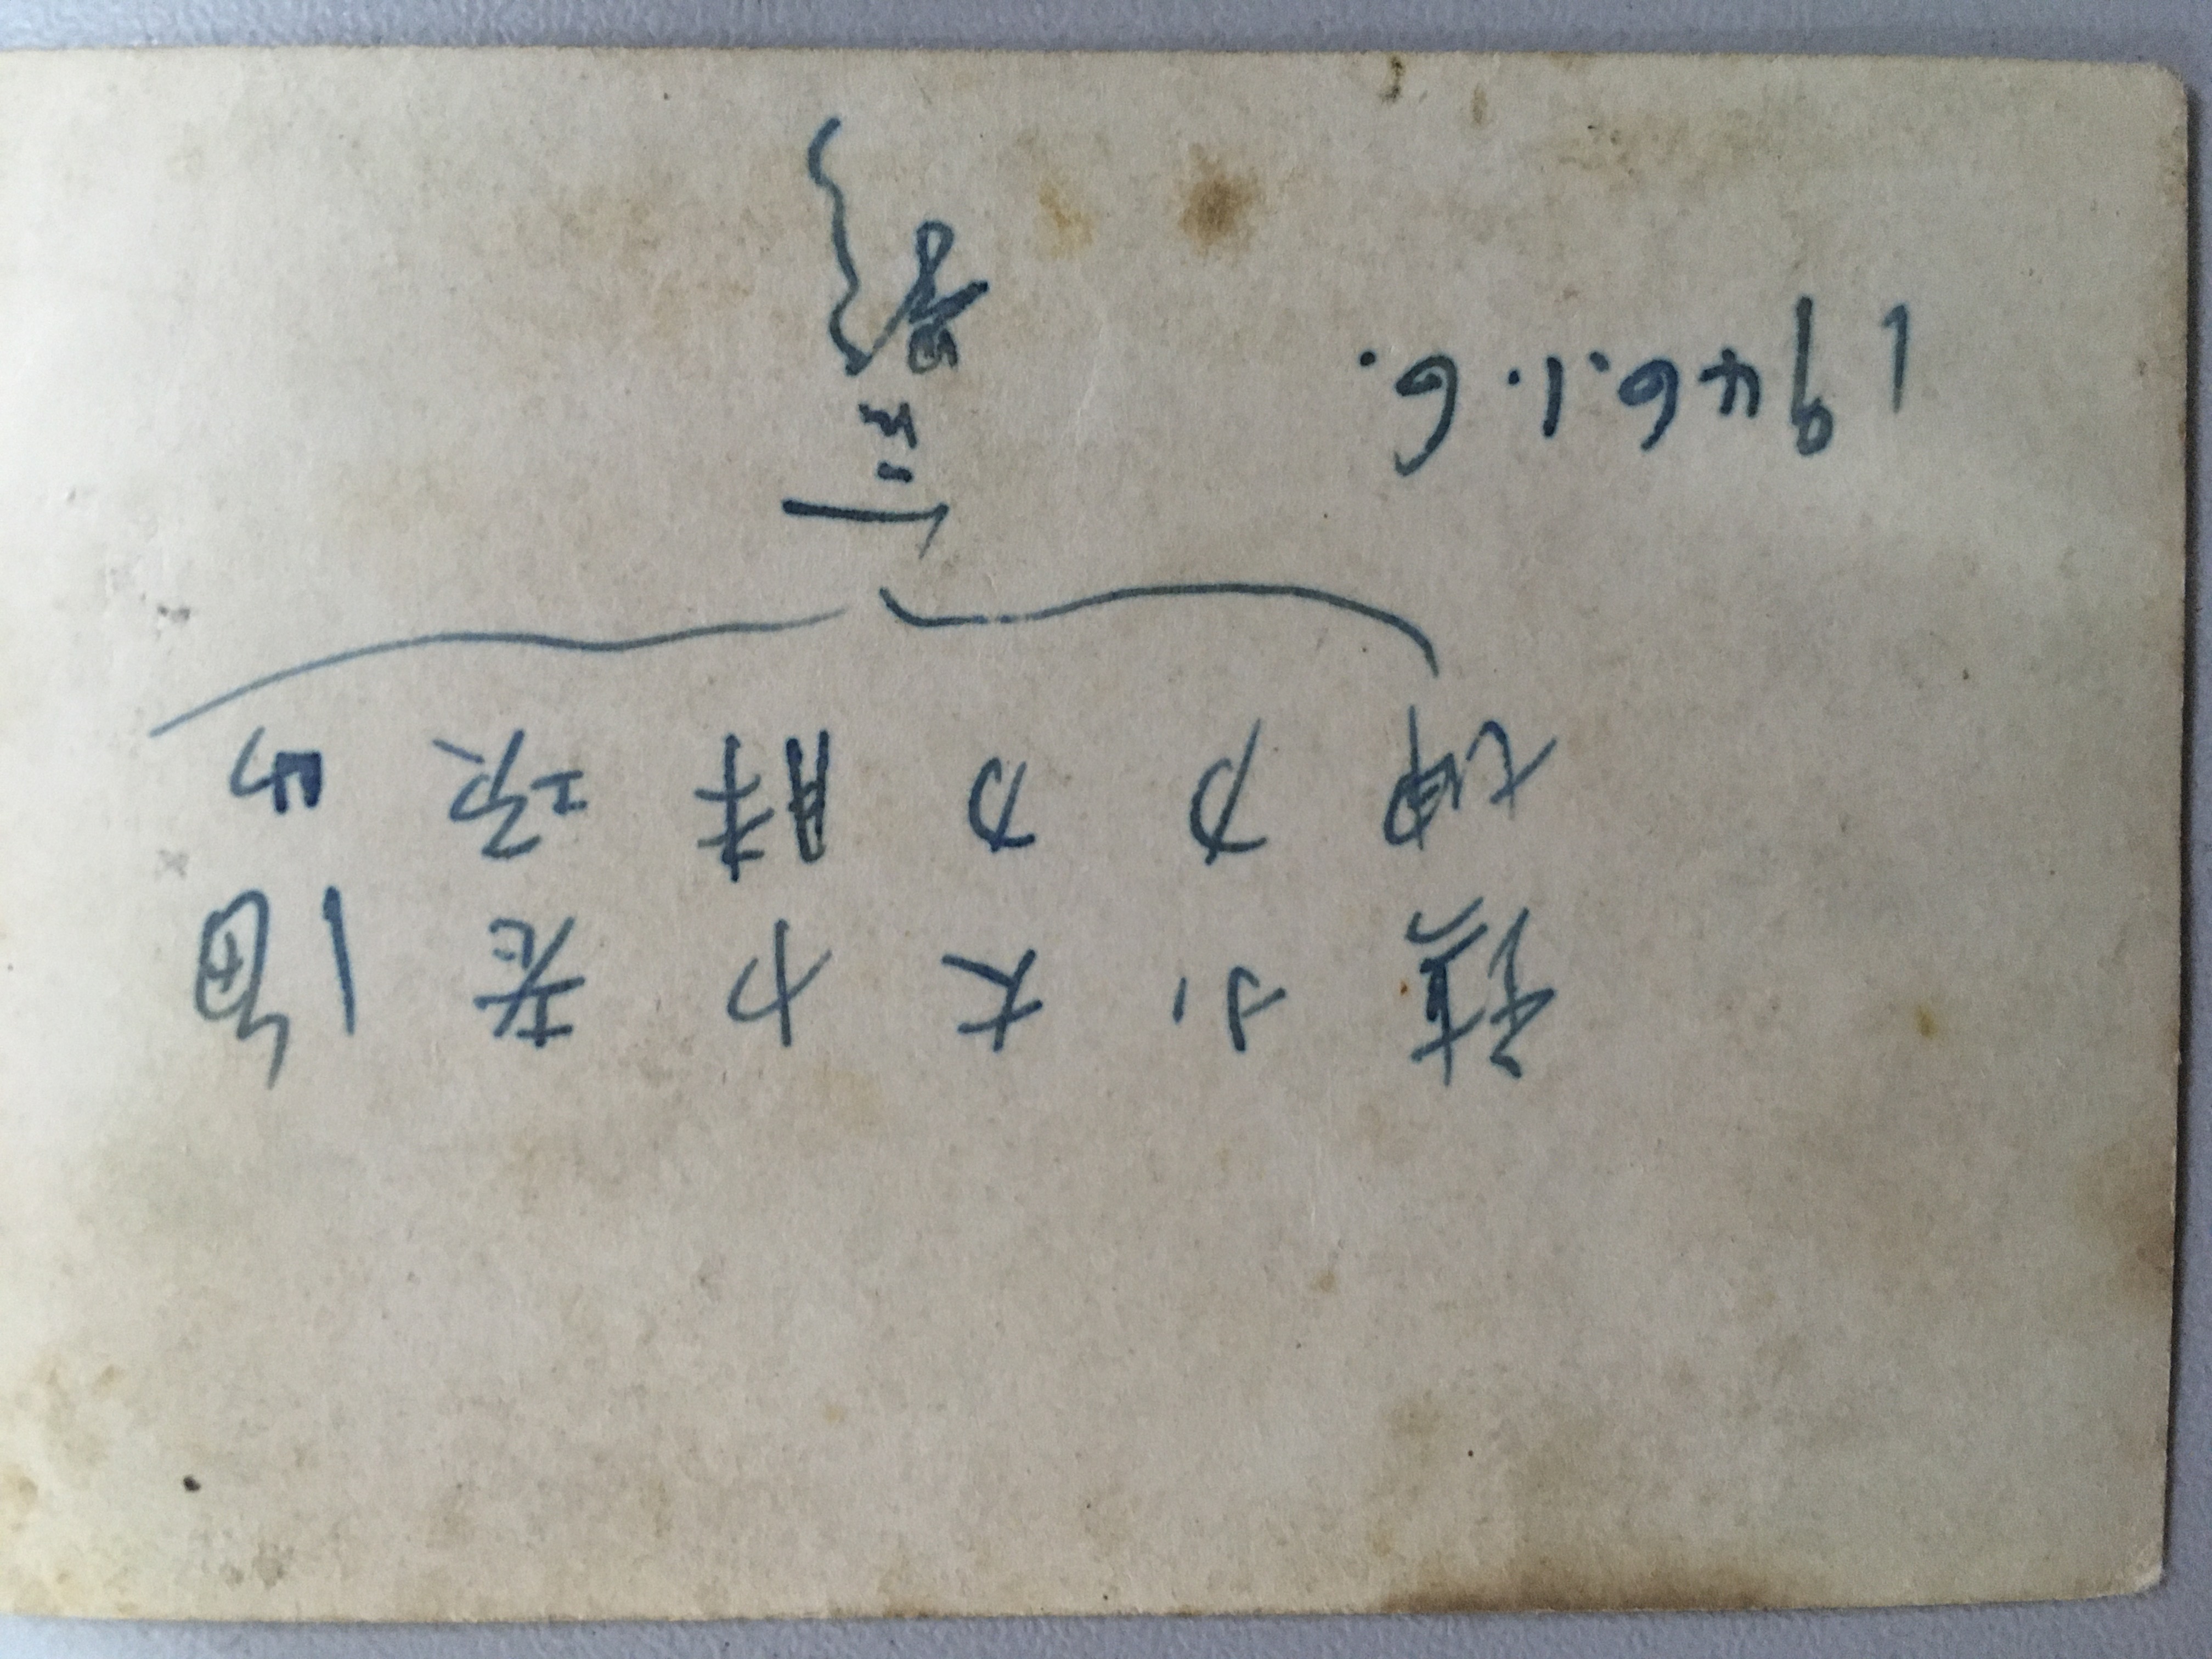 海山
老项
小胖
大力
小力
镇坤
合影
1946.1.6.